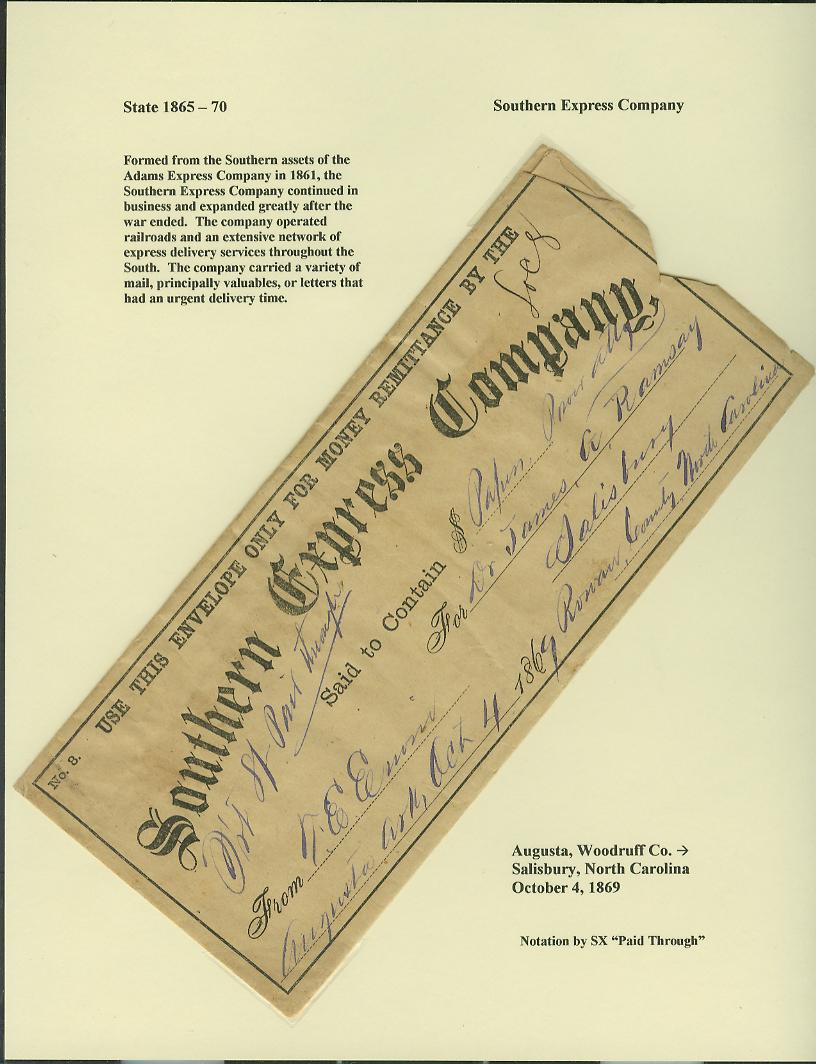 State 1865 – 70
Southern Express Company
Formed from the Southern assets of the
Adams Express Company in 1861, the
Southern Express Company continued in
business and expanded greatly after the
war ended. The company operated
railroads and an extensive network of
express delivery services throughout the
South. The company carried a variety of
mail, principally valuables, or letters that
had an urgent delivery time.
No. 3.
USE THIS ENVELOPE ONLY FOR MONEY REMITTANCE BY THE
Southern Express Company,
Paid through
Said to Contain $
For Dr James A Ramsay
Salisbury
Rowan County North Carolina
From
Augusta Ark, Oct 4 1869
Augusta, Woodruff Co. →
Salisbury, North Carolina
October 4, 1869
Notation by SX “Paid Through”